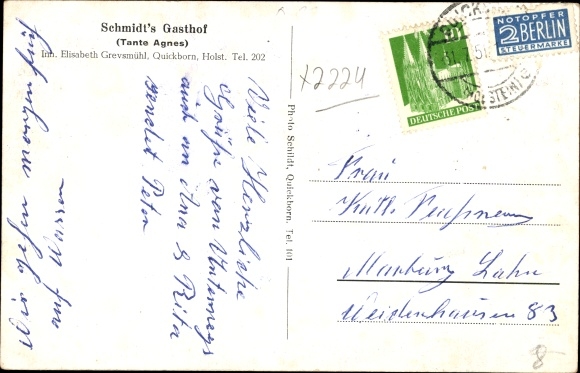 Schmidt's Gasthof
(Tante Agnes)
Inh. Elisabeth Grevsmühl, Quickborn, Holst. Tel. 202
Viele Herzliche
Grüße von Unterwegs
auch an Ana & Rita
sendet Peter
Wir gehen
auf
Photo Schildt, Quickborn, Tel. 101
x2224
DEUTSCHE POST
NOTOPFER
2 BERLIN
STEUERMARKE
Frau
Käthe
Marburg Lahn
Weidenhausen 83
8